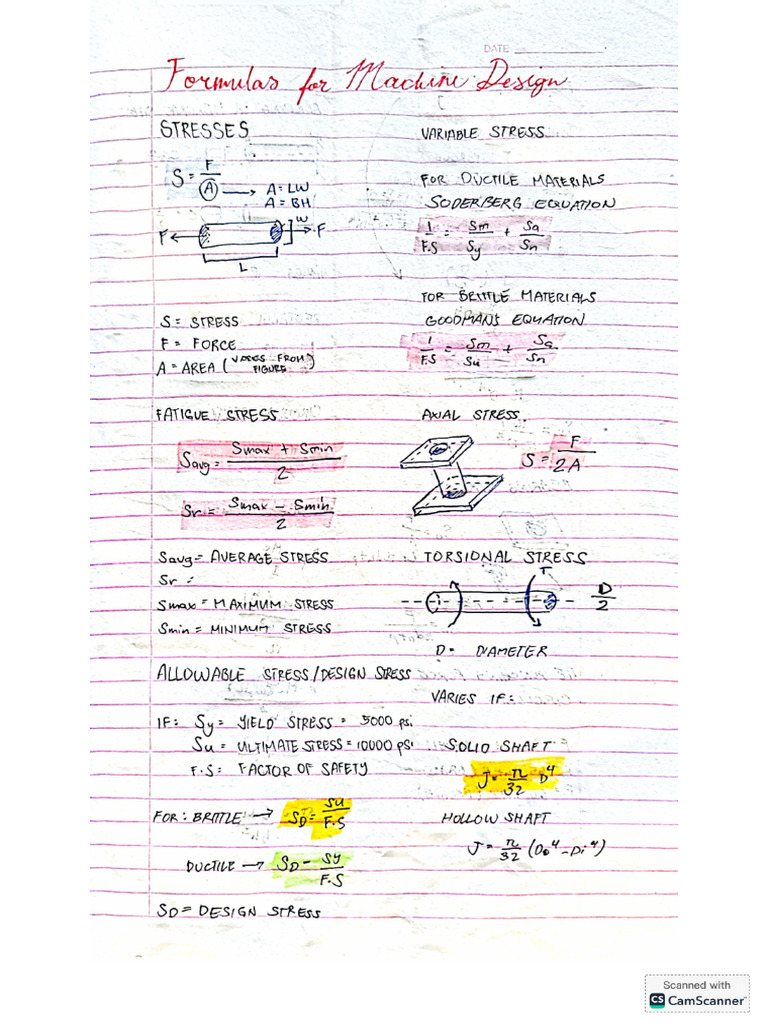 DATE
Formulas for Machine Design
STRESSES
S = F / A → A = LW
A = BH
F W F
L
S = STRESS
F = FORCE
A = AREA (VARIES FROM FIGURE)
FATIGUE STRESS
Savg = Smax + Smin / 2
Sr = Smax - Smin / 2
Savg = AVERAGE STRESS
Sr =
Smax = MAXIMUM STRESS
Smin = MINIMUM STRESS
ALLOWABLE STRESS/DESIGN STRESS
IF: Sy = YIELD STRESS = 5000 psi
Su = ULTIMATE STRESS = 10000 psi
F.S = FACTOR OF SAFETY
FOR: BRITTLE → SD = SU / F.S
DUCTILE → SD = SY / F.S
SD = DESIGN STRESS
VARIABLE STRESS
FOR DUCTILE MATERIALS
SODERBERG EQUATION
1 / F.S = Sm / Sy + Sa / Sn
FOR BRITTLE MATERIALS
GOODMANS EQUATION
1 / F.S = Sm / Su + Sa / Sn
AXIAL STRESS
S = F / 2A
TORSIONAL STRESS
T
D / 2
D = DIAMETER
VARIES IF:
SOLID SHAFT
J = π/32 D⁴
HOLLOW SHAFT
J = π/32 (Do⁴ - Di⁴)
Scanned with
CS CamScanner